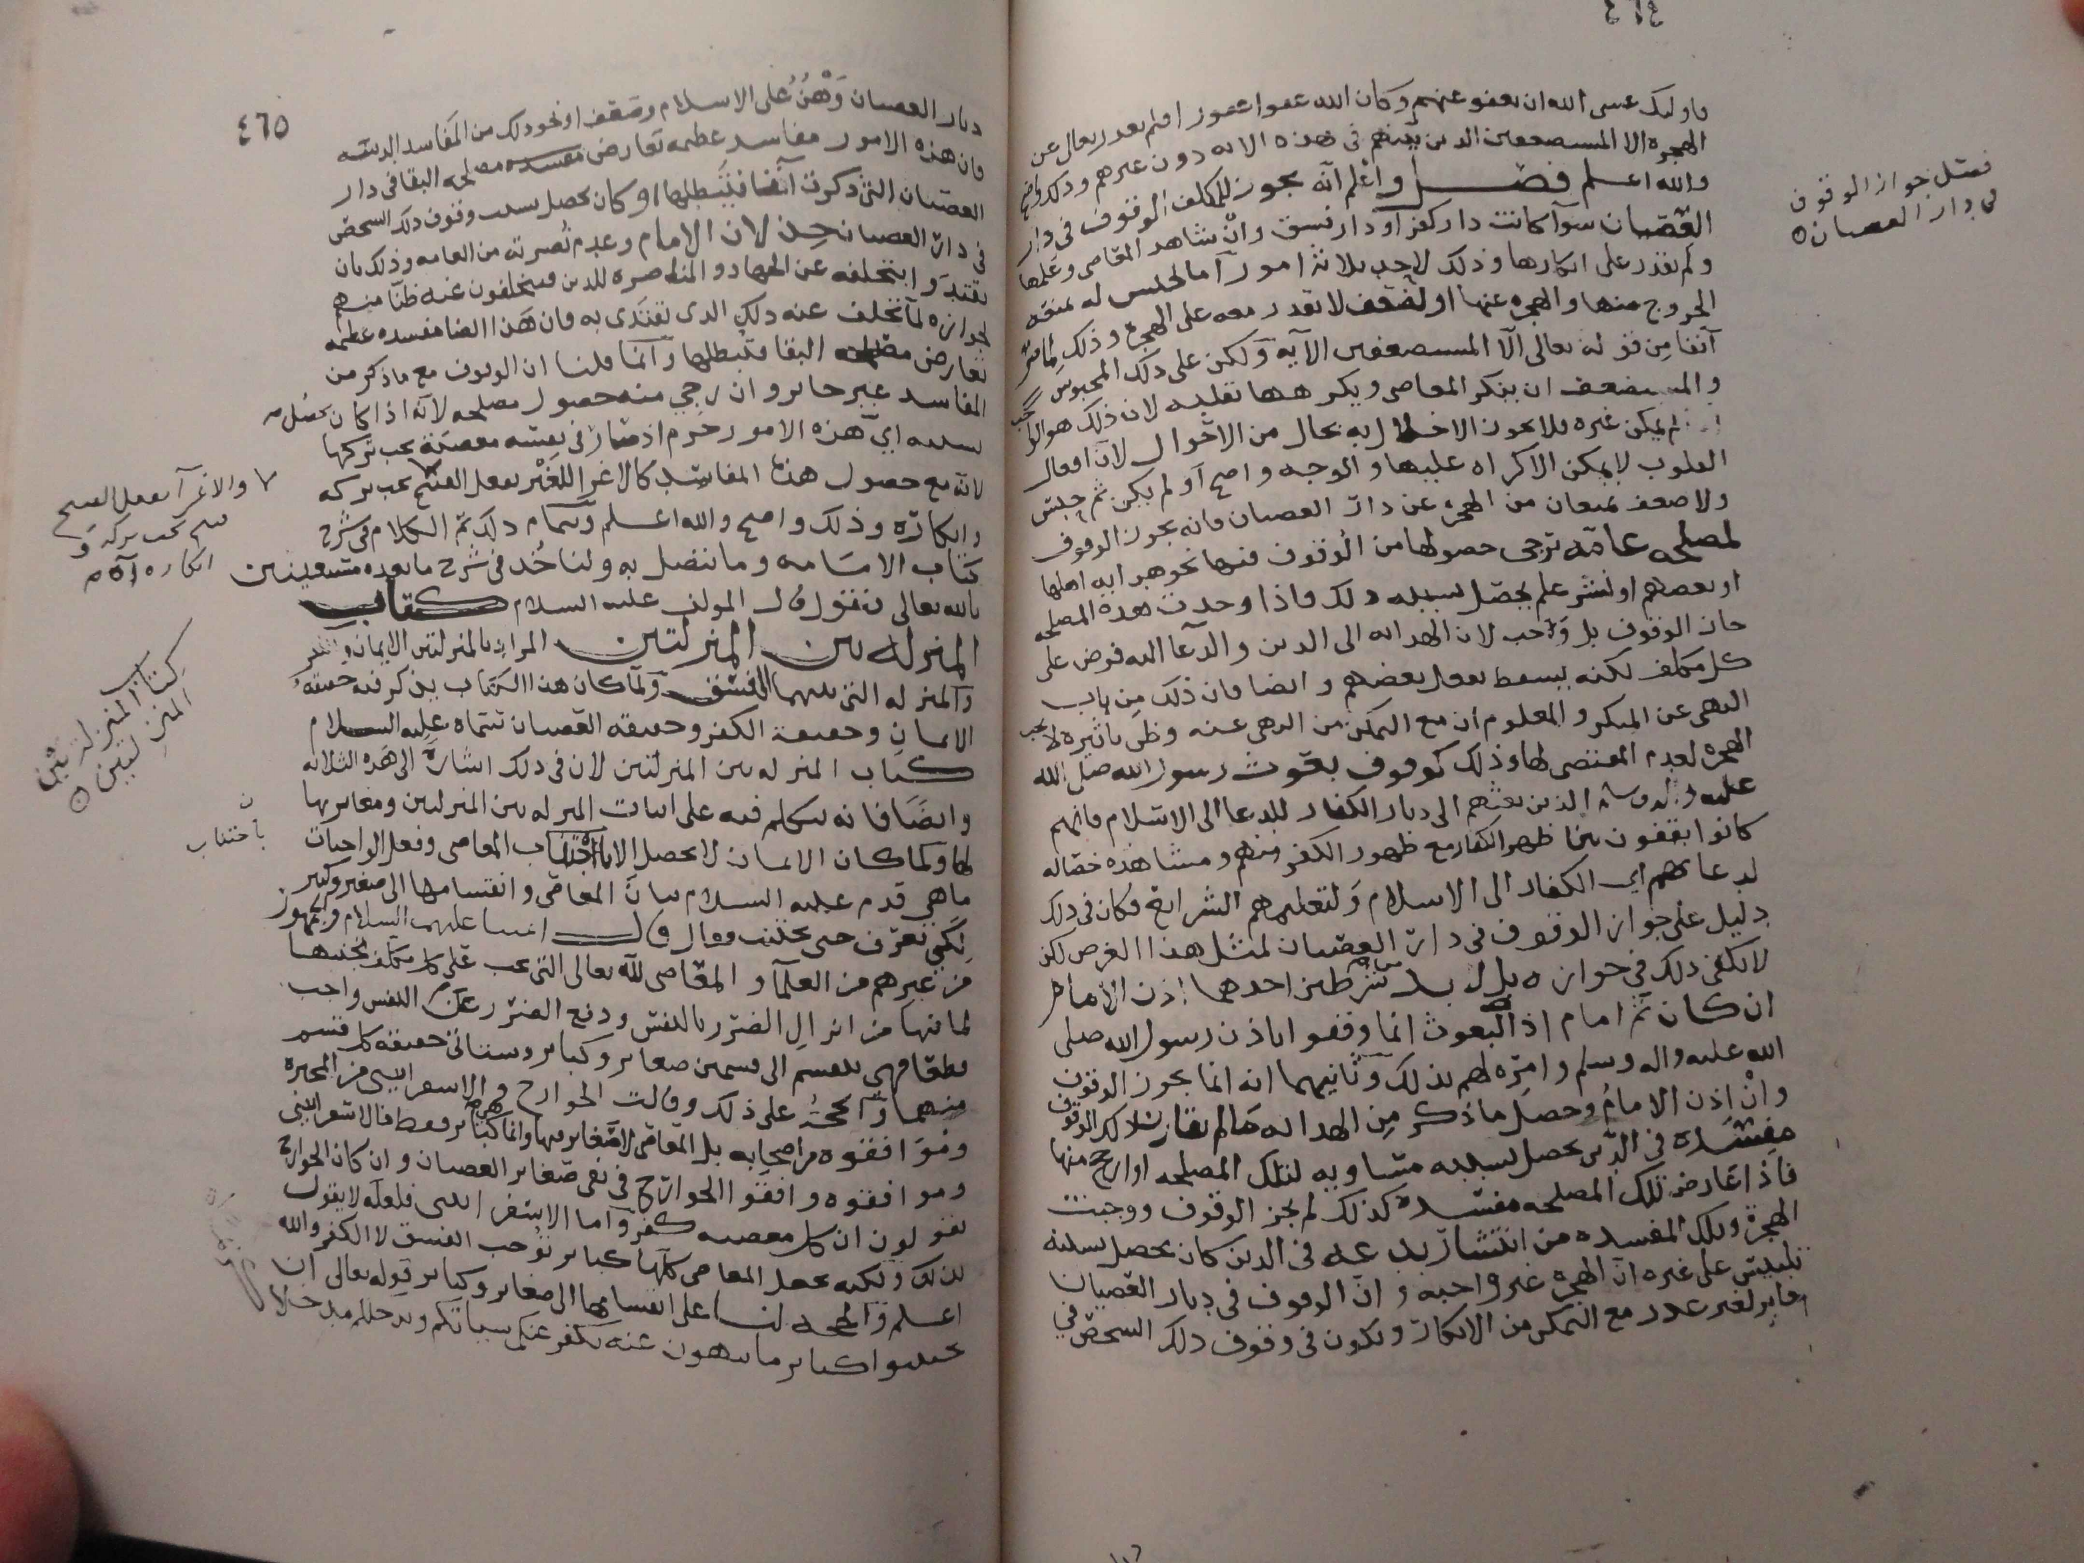 ٤٦٤
فاولئك عسى الله ان يعفو عنهم وكان الله عفوا غفورا فلم يعذر تعالى عن
الهجرة الا المستضعفين الذين بينهم في هذه الايه دون غيرهم وذلك واضح
والله اعلم فصل واعلم انه يجوز للمكلف الوقوف في دار
العصيان سوآ كانت دار كفر او دار فسق وان شاهد المعاصي وعلمها
ولم يقدر على انكارها وذلك لاحد ثلاثة امور اما لحبس له يمنعه
الخروج منها والهجره عنها او لضعف لا يقدر معه على الهجرة وذلك لما مر
آنفا من قوله تعالى الا المستضعفين الآيه ولكن على ذلك المحبوس
والمستضعف ان ينكر المعاصي ويكرهها بقلبه لان ذلك هو الواجب
لم يمكن غيره فلا يجوز الاخلال به بحال من الاحوال لان افعال
القلوب لا يمكن الاكراه عليها والوجه واضح او لم يكن ثم حبس
ولا ضعف يمنعان من الهجرة عن دار العصيان فانه يجوز الوقوف
لمصلحه عامة ترجى حصولها من الوقوف فيها نحو هدايه اهلها
او بعضهم او نشر علم يحصل بسببه ذلك فاذا وجدت هذه المصلحه
جاز الوقوف بل وجب لان الهدايه الى الدين والدعآ اليه فرض على
كل مكلف لكنه يسقط بفعل بعضهم وايضا فان ذلك من باب
النهي عن المنكر والمعلوم ان مع التمكن من النهي عنه وظن تاثيره لا تجب
الهجره لعدم المقتضي لها وذلك كوقوف بعوث رسول الله صلى الله
عليه واله وسلم الذين بعثهم الى ديار الكفار للدعا الى الاسلام فانهم
كانوا يقفون بين ظهر الكفار مع ظهور الكفر منهم ومشاهدة خصاله
لدعائهم اي الكفار الى الاسلام ولتعليمهم الشرائع فكان في ذلك
دليل على جواز الوقوف في دار العصيان لمثل هذا الغرض لكن
لا يكفي ذلك في جوازه بل لا بد من شرطين احدهما اذن الامام
ان كان ثم امام اذ البعوث انما وقفوا باذن رسول الله صلى
الله عليه واله وسلم وامره لهم بذلك وثانيهما انه انما يجوز الوقوف
وان اذن الامام وحصل ما ذكر من الهدايه ما لم تقارن ذلك الوقوف
مفسدة في الدين تحصل بسببه مساويه لتلك المصلحه او ارجح منها
فاذا عارض تلك المصلحه مفسدة كذلك لم يجز الوقوف ووجبت
الهجرة وتلك المفسده من انتشار بدعه في الدين كان يحصل بسببه
تلبيس على غيره ان الهجرة غير واجبه وان الوقوف في ديار العصيان
جايز لغير عذر مع التمكن من الانكار ويكون في وقوف ذلك الشخص في
فصل جواز الوقوف
في دار العصيان
٤٦٥
ديار العصيان وَهْنٌ على الاسلام وضعف او نحو ذلك من المفاسد الدينيه
فان هذه الامور مفاسد عظيمه تعارض مصلحه البقا في دار
العصيان التي ذكرت آنفا فتبطلها او كان يحصل بسبب وقوف ذلك الشخص
في دار العصيان خذلان الامام وعدم نصرته من العامه وذلك بان
يقتدوا بتخلفه عن الجهاد والمناصره للدين فيتخلفون عنه ظنا منهم
لجوازه لما تخلف عنه ذلك الذي يقتدى به فان هذا ايضا مفسده عظيمه
تعارض مصلحه البقا فتبطلها وانما قلنا ان الوقوف مع ما ذكر من
المفاسد غير جايز وان رجي منه حصول مصلحه لانه اذا كان يحصل
بسببه اي هذه الامور حرم اذ صار في نفسه معصية يجب تركها
لانه مع حصول هذه المفاسد كالاغرآ للغير بفعل القبيح يجب تركه
وانكاره وذلك واضح والله اعلم وبتمام ذلك تم الكلام في شرح
كتاب الامامه وما يتصل به ولناخذ في شرح ما بعده مستعينين
بالله تعالى فنقول قال المولف عليه السلام كتاب
المنزله بين المنزلتين المراد بالمنزلتين الايمان والكفر
والمنزله التي بينهما الفسق ولما كان هذا الكتاب يذكر فيه حقيقة
الايمان وحقيقة الكفر وحقيقه العصيان سماه عليه السلام
كتاب المنزله بين المنزلتين لان في ذلك اشارة الى هذه الثلاثه
وايضا فانه يتكلم فيه على اثبات المنزله بين المنزلتين ومغايرتها
لها ولما كان الايمان لا يحصل الا باجتناب المعاصي وفعل الواجبات
ما هي قدم عليه السلام بيان المعاصي وانقسامها الى صغير وكبير
لكي تعرف حتى تجتنب وقال قال ائمتنا عليهم السلام والجمهور
من غيرهم من العلمآ والمعاصي لله تعالى التي يجب على كل مكلف تجنبها
لما فيها من انزال الضرر بالنفس ودفع الضرر عن النفس واجب
مطلقا فهي تنقسم الى قسمين صغاير وكباير وستاتي حقيقة كل قسم
منهما والحجة على ذلك وقالت الخوارج والاسفراييني من المجبرة
وموافقوه من اصحابه بل المعاصي لا صغاير فيها وانما هي كباير فقط فالاسفراييني
وموافقوه وافقوا الخوارج في نفي صغاير العصيان وان كان الخوارج
يقولون ان كل معصيه كفر واما الاسفراييني فلعله لا يقول
بذلك ولكنه يجعل المعاصي كلها كباير توجب الفسق لا الكفر والله
اعلم والحجه لنا على انقسامها الى صغاير وكباير قوله تعالى ان
تجتنبوا كباير ما تنهون عنه نكفر عنكم سيئاتكم وندخلكم مدخلا
والاغرآ بفعل القبيح
قبيح يجب تركه و
انكاره
كتاب المنزلة بين
المنزلتين
ن
باجتناب